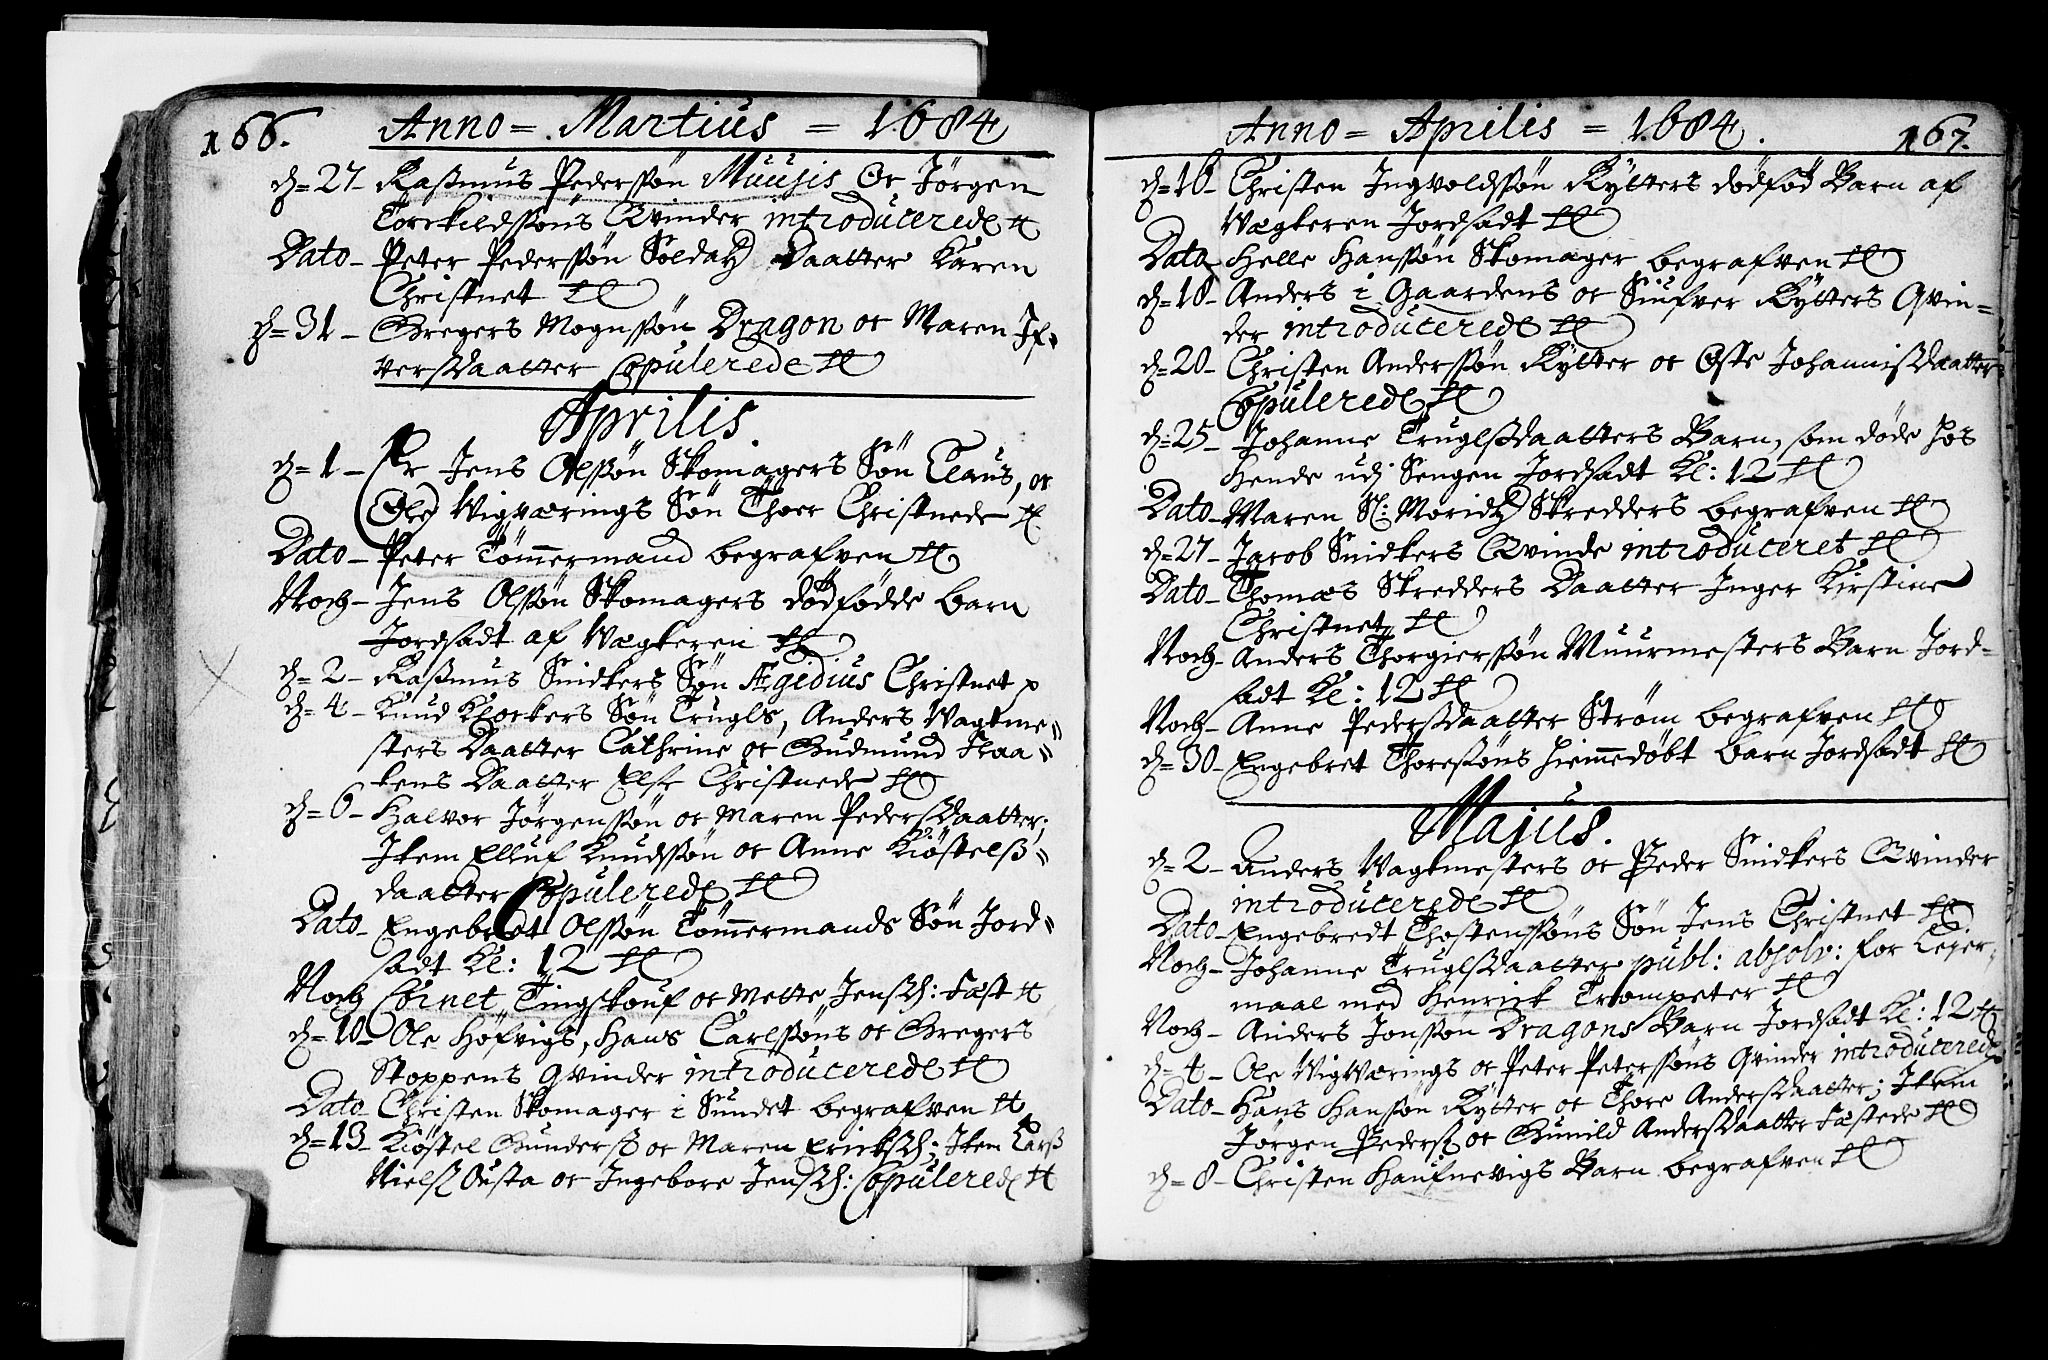 166.
Anno = Martius = 1684
d = 27 - Rasmus Pedersøn Muusis Oc Jörgen
Torkeldssøns Qvinder introducerede
Dato - Peter Pedersøn Soldatz Daatter Karen
Christnet
d = 31 - Gregers Mognssøn Dragon oc Maren If-
versdaatter Copulerede
Aprilis.
d = 1 - Er Jens Olssøn Skomagers Søn Claus, oc
Ole Vigværings Søn Thoer Christnede
Dato - Peter Tømmermand begrafven
Noch - Jens Olssøn Skomagers dødfødde barn
Jordsadt af Vægteren
d = 2 - Rasmus Snidkers Søn Ægidius Christnet
d = 4 - Knud Klockers Søn Trugls, Anders Vagtme=
sters Daatter Cathrine oc Gudmund Flaa=
kens Daatter Else Christnede
d = 6 - Halvor Jörgenssøn oc Maren Pedersdaatter;
Item Elluf Knudssøn oc Anne Kiöstelß=
daatter Copulerede
Dato - Engebret Olssøn Tømmermands Søn Jord=
sadt Kl: 12
Noch Cornet Tingskouf oc Mette Jensd: fæst
d = 10 - Ole Höfvigs, Hans Carlssøns oc Gregers
Stoppens Qvinder introducerede
Dato - Christen Skomager i Sundet begrafven
d = 13 - Kiöstel Gunders oc Maren Ericksd; Item Larß
Nielß Ousta oc Ingebore Jensd: Copulerede
Anno = Aprilis = 1684.
167.
d = 16 - Christen Ingvoldssøn Rytters dödfød Barn af
Vægteren Jordsadt
Dato - Helle Hanssøn Skomager begrafven
d = 18 - Anders i Gaardens oc Siufver Rytters Qvin=
der introducerede
d = 20 - Christen Anderssøn Rytter oc Oste Johannisdaatter
Copulerede
d = 25 - Johanne Truglsdaatters Barn, som døde hos
Hende udj Sengen Jordsadt Kl: 12
Dato - Maren Sl: Moridtz Skredders begrafven
d = 27 - Jacob Snidkers Qvinde introduceret
Dato - Thomæs Skredders Daatter Inger Kirstine
Christnet
Noch - Anders Thorgierssøn Muurmesters Barn Jord-
sadt Kl: 12
Noch - Anne Pedersdaatter Strøm begrafven
d = 30 - Engebret Thoressøns hiemmedøbt barn Jordsadt
Majus.
d = 2 - Anders Vagtmesters oc Peder Snidkers Qvinder
introducerede
Dato - Engebredt Thostenssøns Søn Jens Christnet
Noch - Johanne Truglsdaatter publ: absolv: for Leier-
maal med Henrick Trompeter
Noch - Anders Jonssøn Dragons Barn Jordsadt Kl: 12
d = 4 - Ole Vigværings oc Peter Peterssøns Qvinder introducerede
Dato - Hans Hanssøn Rytter oc Thore Andersdaatter; Item
Jörgen Peders oc Gunild Andersdaatter fæstede
d = 8 - Christen Haufnevigs Barn begrafven